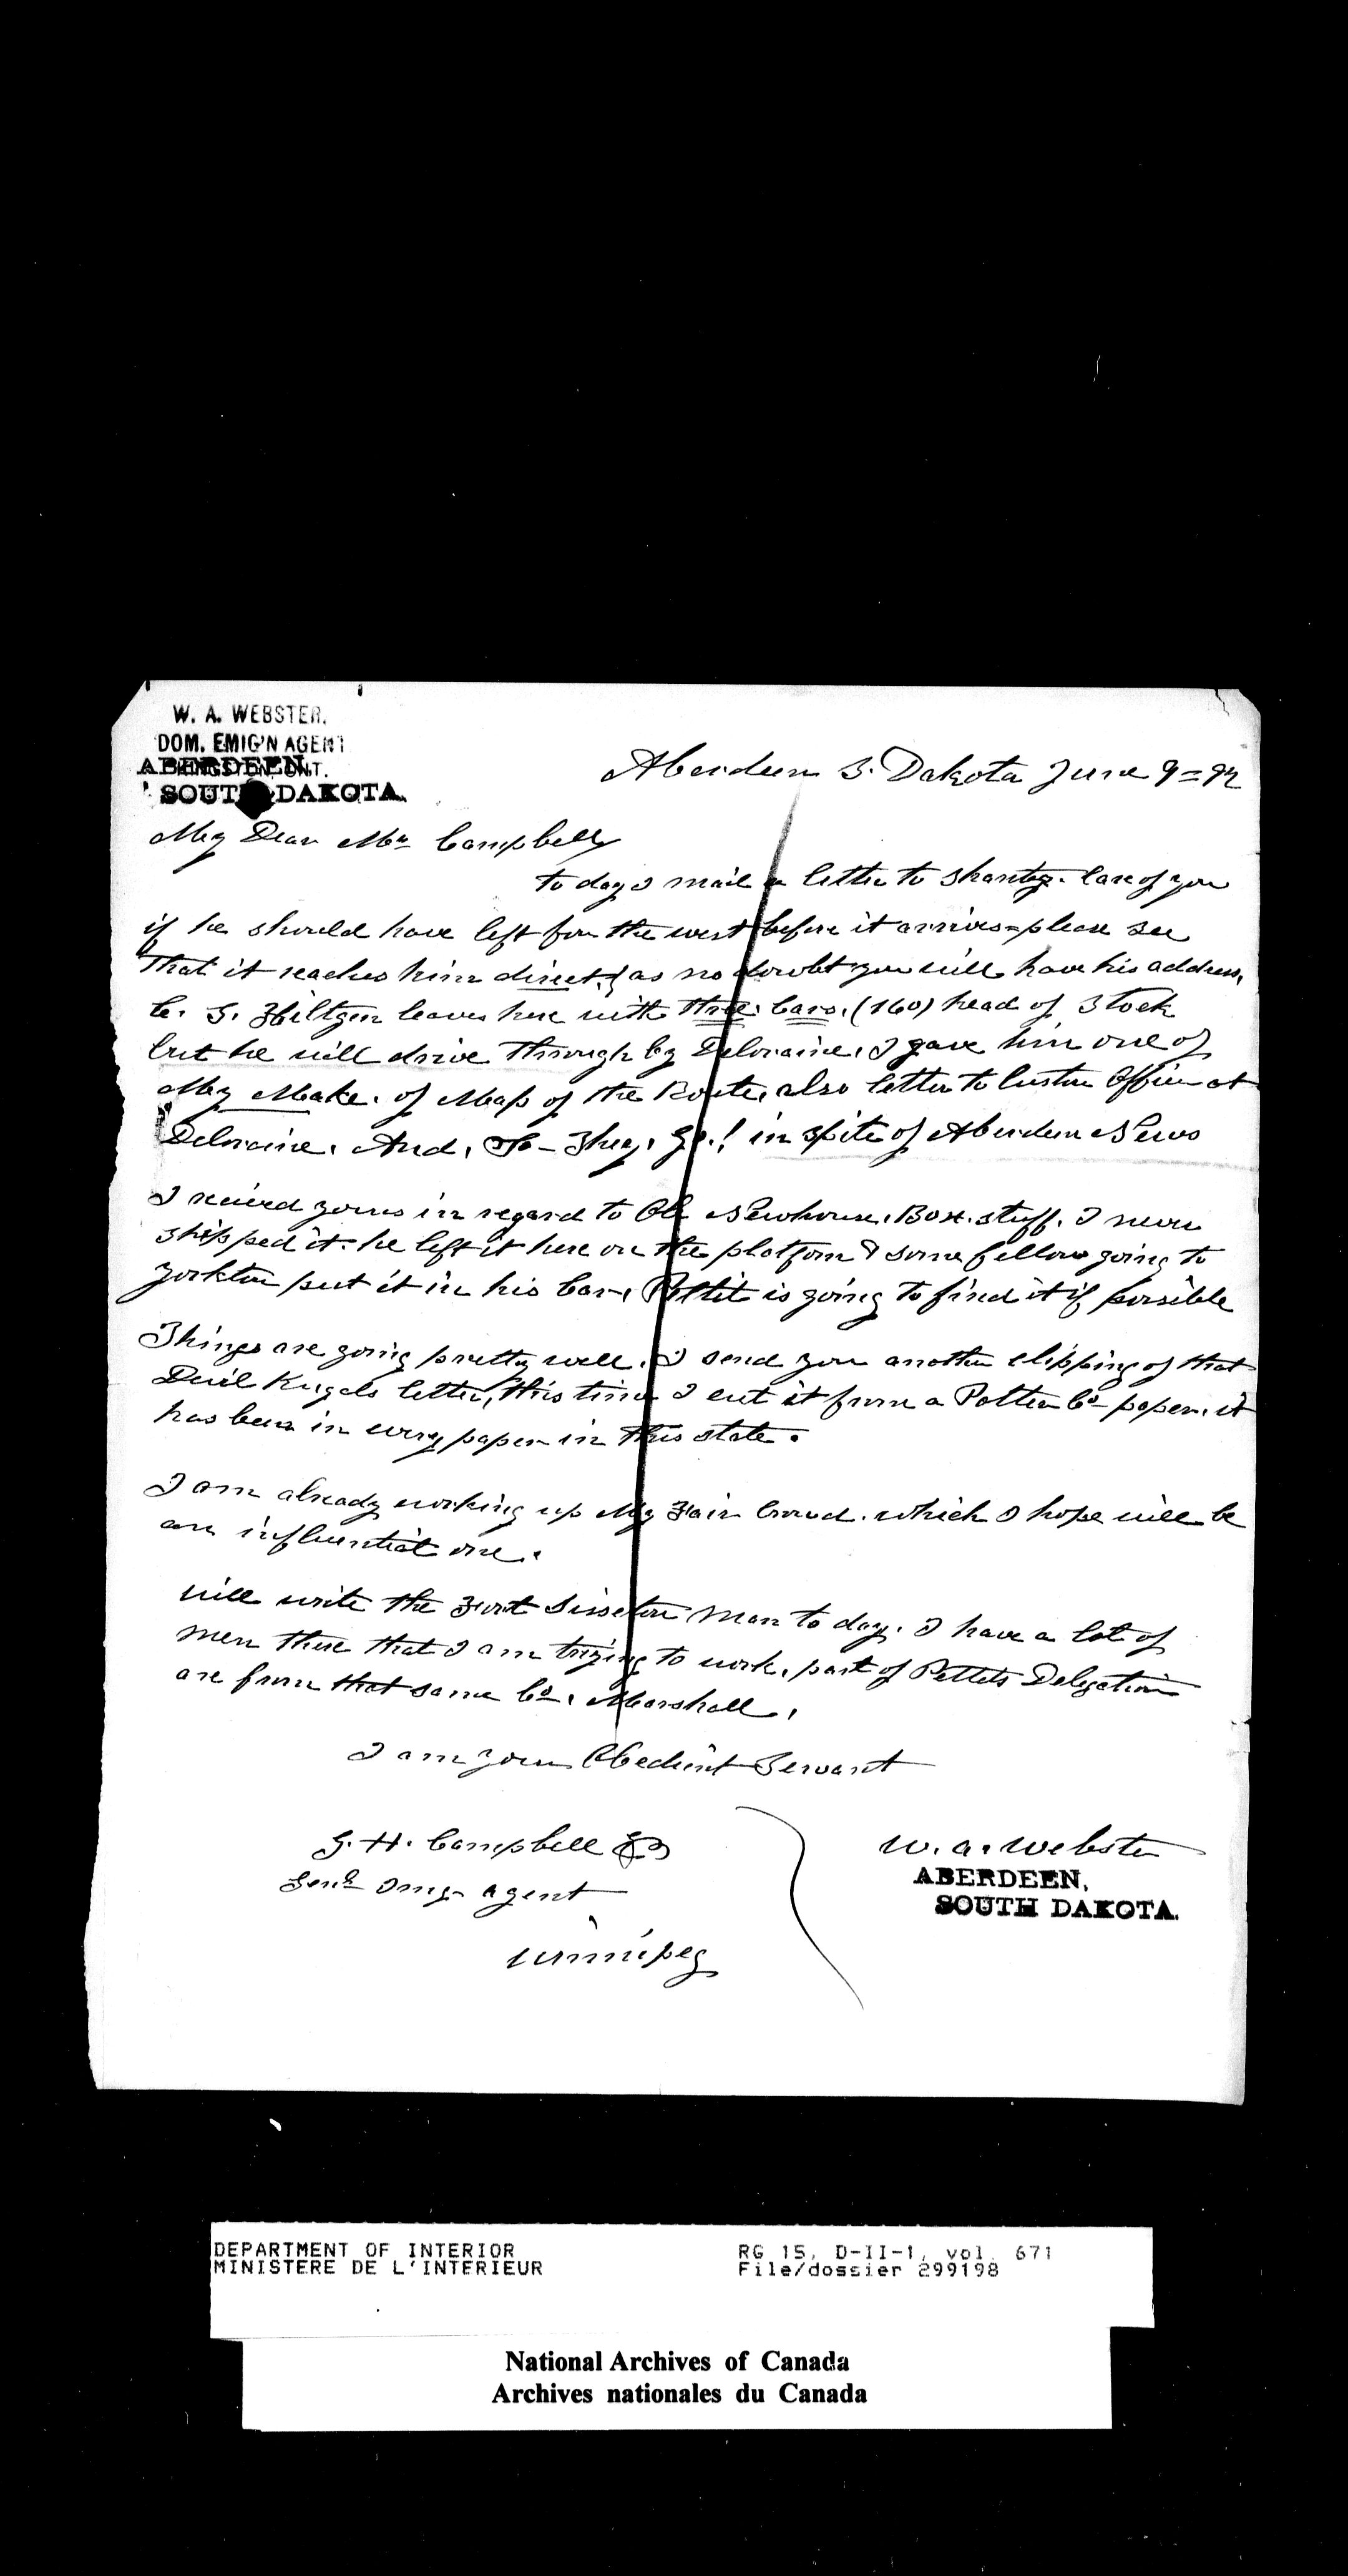 W. A. WEBSTER.
DOM. EMIG'N AGENT
KINGSTON ONT.
ABERDEEN,
SOUTH DAKOTA.
Aberdeen S. Dakota June 9 = 92
My Dear Mr Campbell
to day I mail a letter to Shantz. Care of you
if he should have left for the west before it arrives = please see
that it reaches him direct, as no doubt you will have his address,
C. S. leaves here with three Cars. (160) head of Stock
but he will drive through by Deloraine, I gave him one of
My Make. of Map of the Route, also letter to Custom Office at
Deloraine. And, So - They, Go! in spite of Aberdeen News
I recived yours in regard to Ole Newhouse, Box. stuff. I never
shipped it. he left it here on the platform & some fellow going to
Yorkton put it in his Car, Pettit is going to find it if possible
Things are going pretty well. I send you another clipping of that
Devil letter, this time I cut it from a Potter Co paper. it
has been in every paper in this state.
I am already working up My Fair Crowd. which I hope will be
an influential one.
will write the Fort Sisseton man to day. I have a lot of
men there that I am trying to work, part of Pettits Delegation
are from that same Co. Marshall.
I am your Obedient Servant
G. H. Campbell
W. A. Webster
Genl Img. Agent
ABERDEEN,
SOUTH DAKOTA.
Winnipeg
DEPARTMENT OF INTERIOR RG 15, D-II-1, vol. 671
MINISTERE DE L'INTERIEUR File/dossier 299198
National Archives of Canada
Archives nationales du Canada